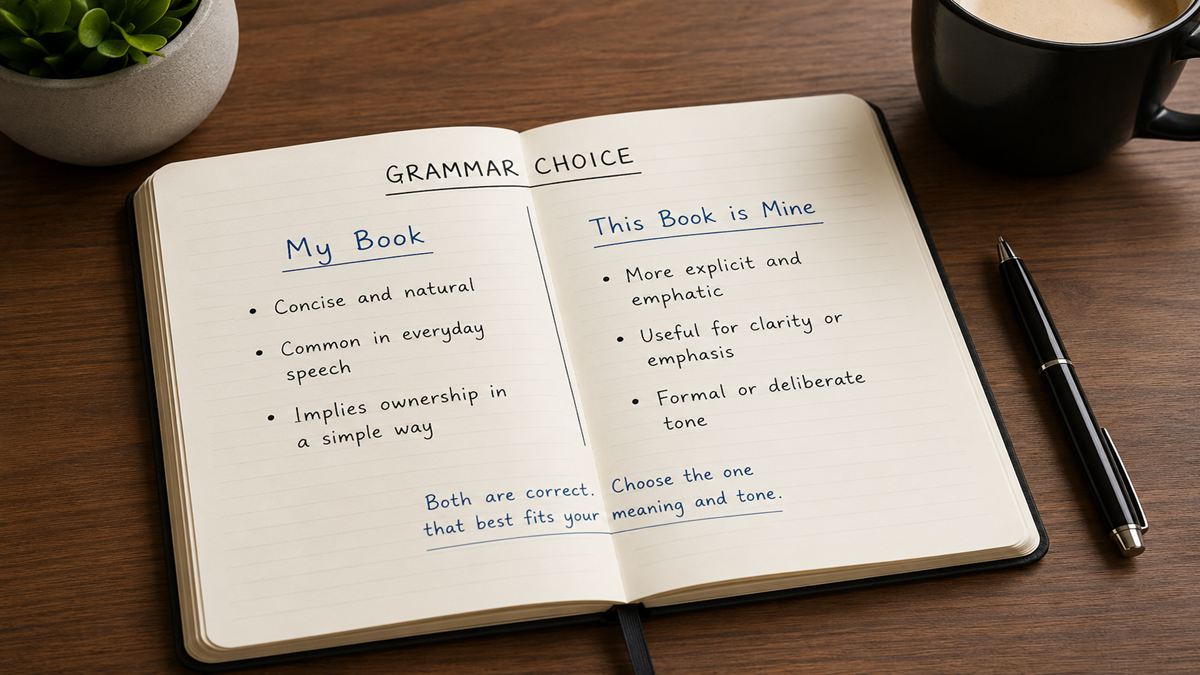 GRAMMAR CHOICE
My Book
• Concise and natural
• Common in everyday
speech
• Implies ownership in
a simple way
This Book is Mine
• More explicit and
emphatic
• Useful for clarity or
emphasis
• Formal or deliberate
tone
Both are correct. Choose the one
that best fits your meaning and tone.